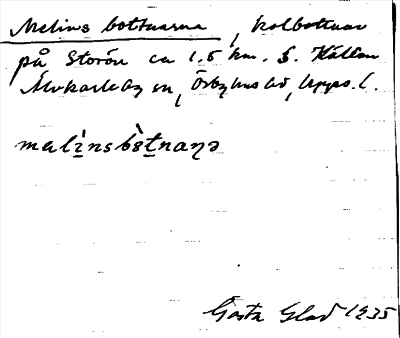 Melins bottnarna, kolbottnar
på Storön ca 1.5 km. S. Hållan
Älvkarleby sn, Örbyhus hd, Upps. l.
melinsbòtnaṇə
Gösta Glad 1935